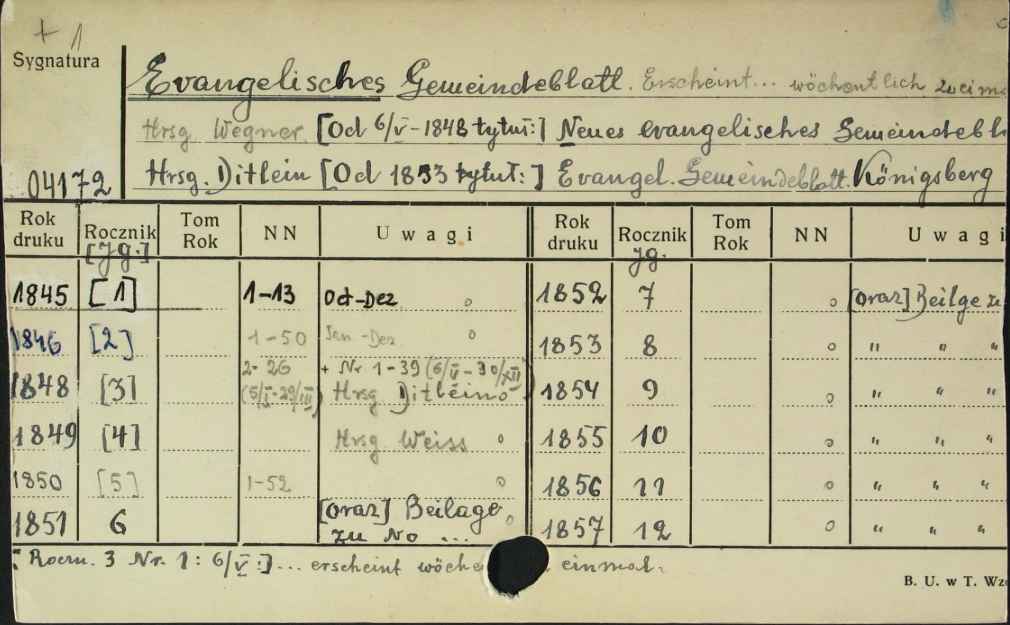 + 1
Sygnatura
Evangelisches Gemeindeblatt. Erscheint... wöchentlich zweima
Hrsg Wegner. [Od 6/V - 1848 tytuł:] Neues evangelisches Gemeindebl
04172
Hrsg. Ditlein [Od 1853 tytuł:] Evangel. Gemeindeblatt. Königsberg
Rok druku | Rocznik [Jg.] | Tom Rok | NN | Uwagi | Rok druku | Rocznik Jg. | Tom Rok | NN | Uwagi
1845 | [1] | 1-13 | Oct-Dez o | 1852 | 7 | o | [oraz] Beilge zu
1846 | [2] | 1-50 | Jan-Dez o | 1853 | 8 | o | " " "
1848 | [3] | 2-26 (5/I-29/III) | + Nr 1-39 (6/V-30/XII) Hrsg Ditleino | 1854 | 9 | o | " " "
1849 | [4] | Hrsg Weiss o | 1855 | 10 | o | " " "
1850 | [5] | 1-52 | o | 1856 | 11 | o | " " "
1851 | 6 | [oraz] Beilage zu No ... o | 1857 | 12 | o | " " "
[: Roczn. 3 Nr. 1: 6/V:] ... erscheint wöche einmal.
B. U. w T. Wz